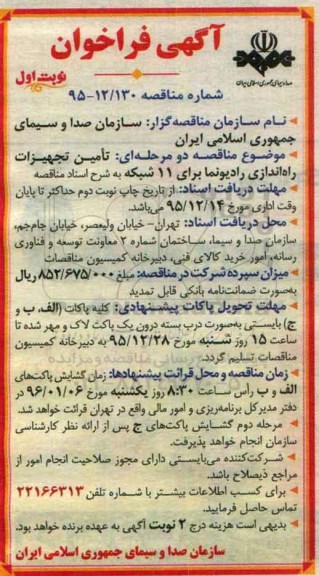 آگهی فراخوان
نوبت اول
صدا و سیمای جمهوری اسلامی ایران
شماره مناقصه ۱۲/۱۳۰-۹۵
نام سازمان مناقصه‌گزار: سازمان صدا و سیمای
جمهوری اسلامی ایران
موضوع مناقصه دو مرحله‌ای: تأمین تجهیزات
راه‌اندازی رادیونما برای ۱۱ شبکه به شرح اسناد مناقصه
مهلت دریافت اسناد: از تاریخ چاپ نوبت دوم حداکثر تا پایان
وقت اداری مورخ ۹۵/۱۲/۱۴ می‌باشد.
محل دریافت اسناد: تهران- خیابان ولیعصر، خیابان جام‌جم،
سازمان صدا و سیما، ساختمان شماره ۲ معاونت توسعه و فناوری
رسانه، امور خرید کالای فنی، دبیرخانه کمیسیون مناقصات
میزان سپرده شرکت در مناقصه: مبلغ ۸۵۲/۶۷۵/۰۰۰ ریال
به‌صورت ضمانت‌نامه بانکی قابل تمدید
مهلت تحویل پاکات پیشنهادی: کلیه پاکات (الف، ب و
ج) بایستی به‌صورت درب بسته درون یک پاکت لاک و مهر شده تا
ساعت ۱۵ روز شنبه مورخ ۹۵/۱۲/۲۸ به دبیرخانه کمیسیون
مناقصات تسلیم گردد.
زمان مناقصه و محل قرائت پیشنهادها: زمان گشایش پاکت‌های
الف و ب رأس ساعت ۸:۳۰ روز یکشنبه مورخ ۹۶/۰۱/۰۶ در
دفتر مدیرکل برنامه‌ریزی و امور مالی واقع در تهران قرائت خواهد شد.
مرحله دوم گشایش پاکت‌های ج پس از ارائه نظر کارشناسی
سازمان انجام خواهد پذیرفت.
شرکت‌کننده می‌بایستی دارای مجوز صلاحیت انجام امور از
مراجع ذیصلاح باشد.
برای کسب اطلاعات بیشتر با شماره تلفن ۲۲۱۶۶۳۱۳
تماس حاصل فرمایید.
بدیهی است هزینه درج ۲ نوبت آگهی به عهده برنده خواهد بود.
سازمان صدا و سیمای جمهوری اسلامی ایران